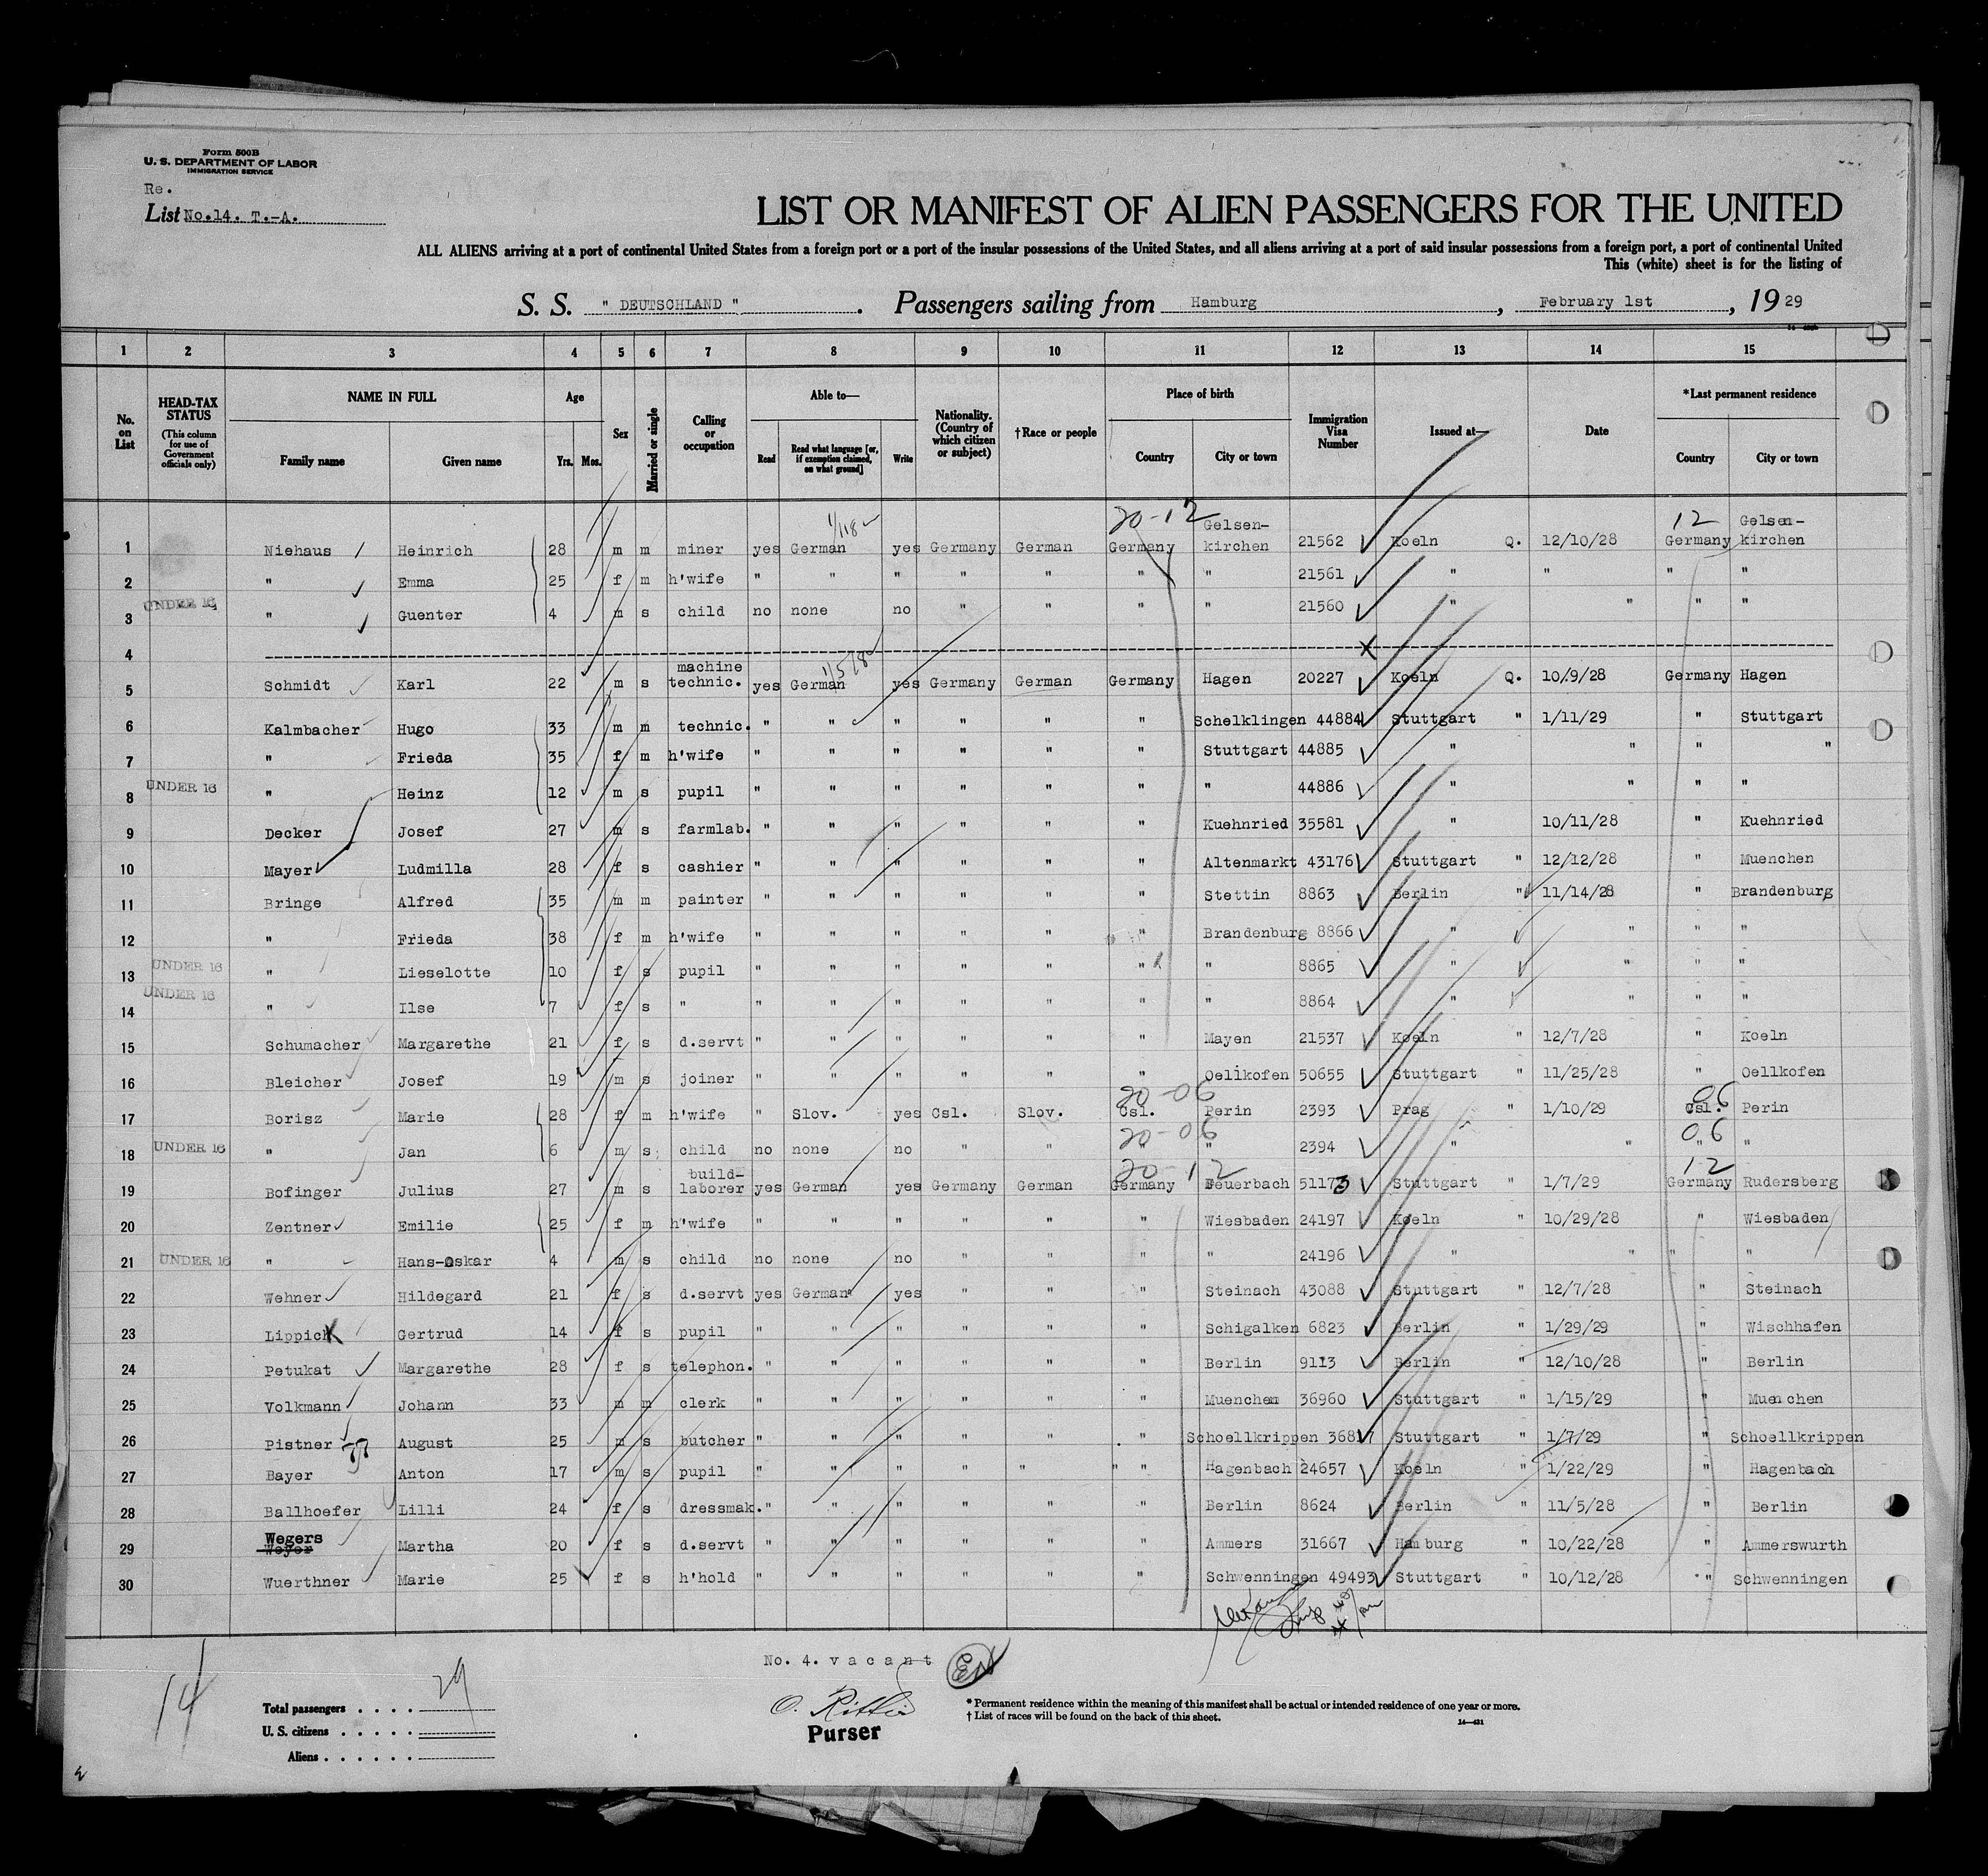 Form 500B
U. S. DEPARTMENT OF LABOR
IMMIGRATION SERVICE
Re.
List No.14. T.-A.
LIST OR MANIFEST OF ALIEN PASSENGERS FOR THE UNITED
ALL ALIENS arriving at a port of continental United States from a foreign port or a port of the insular possessions of the United States, and all aliens arriving at a port of said insular possessions from a foreign port, a port of continental United
This (white) sheet is for the listing of
S. S. " DEUTSCHLAND " . Passengers sailing from Hamburg , February 1st , 19 29
1 2 3 4 5 6 7 8 9 10 11 12 13 14 15
No. on List
HEAD-TAX STATUS (This column for use of Government officials only)
NAME IN FULL Family name Given name
Age Yrs. Mos.
Sex
Married or single
Calling or occupation
Able to— Read Read what language [or, if exemption claimed, on what ground] Write
Nationality. (Country of which citizen or subject)
†Race or people
Place of birth Country City or town
Immigration Visa Number
Issued at—
Date
*Last permanent residence Country City or town
20-12 Gelsen- 12 Gelsen-
1 Niehaus Heinrich 28 m m miner yes German yes Germany German Germany kirchen 21562 Koeln Q. 12/10/28 Germany kirchen
2 " Emma 25 f m h'wife " " " " " " " 21561 " " " "
3 UNDER 16 " Guenter 4 m s child no none no " " " " 21560 " " " "
4
machine
5 Schmidt Karl 22 m s technic. yes German yes Germany German Germany Hagen 20227 Koeln Q. 10/9/28 Germany Hagen
6 Kalmbacher Hugo 33 m m technic. " " " " " " Schelklingen 44884 Stuttgart " 1/11/29 " Stuttgart
7 " Frieda 35 f m h'wife " " " " " " Stuttgart 44885 " " " "
8 UNDER 16 " Heinz 12 m s pupil " " " " " " " 44886 " " " "
9 Decker Josef 27 m s farmlab. " " " " " " Kuehnried 35581 " 10/11/28 " Kuehnried
10 Mayer Ludmilla 28 f s cashier " " " " " " Altenmarkt 43176 Stuttgart " 12/12/28 " Muenchen
11 Bringe Alfred 35 m m painter " " " " " " Stettin 8863 Berlin " 11/14/28 " Brandenburg
12 " Frieda 38 f m h'wife " " " " " " Brandenburg 8866 " " " "
13 UNDER 16 " Lieselotte 10 f s pupil " " " " " " " 8865 " " " "
14 UNDER 16 " Ilse 7 f s " " " " " " " " 8864 " " " "
15 Schumacher Margarethe 21 f s d.servt " " " " " " Mayen 21537 Koeln " 12/7/28 " Koeln
16 Bleicher Josef 19 m s joiner " " " " " " Oellkofen 50655 Stuttgart " 11/25/28 " Oellkofen
20-06 06
17 Borisz Marie 28 f m h'wife " Slov. yes Csl. Slov. Csl. Perin 2393 Prag " 1/10/29 Csl. Perin
20-06 06
18 UNDER 16 " Jan 6 m s child no none no " " " " 2394 " " " "
build- 20-12 12
19 Bofinger Julius 27 m s laborer yes German yes Germany German Germany Feuerbach 51173 Stuttgart " 1/7/29 Germany Rudersberg
20 Zentner Emilie 25 f m h'wife " " " " " " Wiesbaden 24197 Koeln " 10/29/28 " Wiesbaden
21 UNDER 16 " Hans-Oskar 4 m s child no none no " " " " 24196 " " " "
22 Wehner Hildegard 21 f s d.servt yes German yes " " " Steinach 43088 Stuttgart " 12/7/28 " Steinach
23 Lippich Gertrud 14 f s pupil " " " " " " Schigalken 6823 Berlin " 1/29/29 " Wischhafen
24 Petukat Margarethe 28 f s telephon. " " " " " " Berlin 9113 Berlin " 12/10/28 " Berlin
25 Volkmann Johann 33 m m clerk " " " " " " Muenchen 36960 Stuttgart " 1/15/29 " Muenchen
26 Pistner August 25 m s butcher " " " " " " Schoellkrippen Stuttgart " 1/7/29 " Schoellkrippen
27 Bayer Anton 17 m s pupil " " " " " " " Hagenbach 24657 Koeln " 1/22/29 " Hagenbach
28 Ballhoefer Lilli 24 f s dressmak. " " " " " " Berlin 8624 Berlin " 11/5/28 " Berlin
Wegers
29 Weyer Martha 20 f s d.servt " " " " " " Ammers 31667 Hamburg " 10/22/28 " Ammerswurth
30 Wuerthner Marie 25 f s h'hold " " " " " " Schwenningen 49493 Stuttgart " 10/12/28 " Schwenningen
No. 4. vacant
14
Total passengers . . . . 29
U. S. citizens . . . . .
Aliens . . . . . .
Purser
* Permanent residence within the meaning of this manifest shall be actual or intended residence of one year or more.
† List of races will be found on the back of this sheet.
14—431